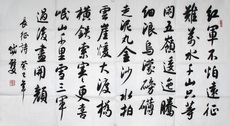 紅軍不怕遠征
難萬水千山只等
閑五嶺逶迤騰
細浪烏蒙磅礴
走泥丸金沙水拍
雲崖暖大渡橋
橫鐵索寒更喜
岷山千里雪三軍
過後盡開顏
長征詩